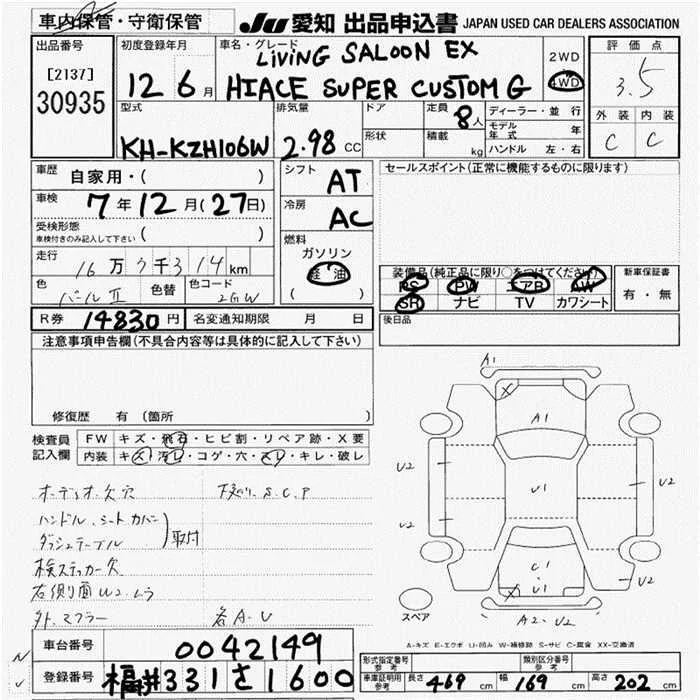 車内保管・守衛保管
JU 愛知 出品申込書 JAPAN USED CAR DEALERS ASSOCIATION
出品番号
[2137]
30935
初度登録年月
12 6月
車名・グレード
LIVING SALOON EX
HIACE SUPER CUSTOM G
2WD
4WD
評価点
3.5
外装 内装
C C
型式
KH-KZH106W
排気量
2.98 CC
ドア
形状
定員
8人
積載
kg
ディーラー・並行
モデル年式 年
ハンドル 左・右
車歴
自家用・( )
車検
7年12月(27日)
受検形態
車検付きのみ記入して下さい ( )
走行
16万 千3 14km
色
パール II
色替
色コード
2GW
シフト
AT
冷房
AC
燃料
ガソリン
軽油
( )
セールスポイント(正常に機能するものに限ります)
装備品(純正品に限り○をつけてください)
PS PW エアB AW
SR ナビ TV カワシート
新車保証書
有・無
R券 14830円 名変通知期限 月 日
後日品
注意事項申告欄(不具合内容等は具体的に記入して下さい)
修復歴 有 (箇所 )
検査員記入欄
FW キズ・飛石・ヒビ割・リペア跡・X要
内装 キズ・汚レ・コゲ・穴・スレ・キレ・破レ
オーディオ欠穴
下廻り.S.C.P
ハンドル.シートカバー
ダッシュテーブル
取付
検ステッカー欠
右側面U2.ムラ
外.マフラー
各A-U
A1
X
A1
U2
U2
U1
U2
C1
U1
X
U2
A2.U2
スペア
A-キズ E-エクボ U-凹み W-補修跡 S-サビ C-腐食 XX-交換済
車台番号
0042149
登録番号
福井331さ1600
形式指定番号
参考
類別区分番号
参考
車庫証明用
参考
長さ 469cm 幅 169cm 高さ 202cm